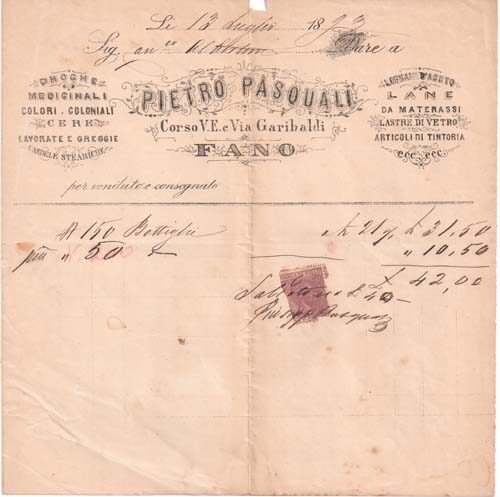 Li 13 Luglio 1893
Sig.
Dare a
DROGHE
MEDICINALI
COLORI E COLONIALI
CERE
LAVORATE E GREGGIE
CANDELE STEARICHE
PIETRO PASQUALI
Corso V. E. e Via Garibaldi
FANO
LEGNAMI D'ABETO
LANE
DA MATERASSI
LASTRE DI VETRO
ARTICOLI DI TINTORIA
ecc. ecc.
per venduto e consegnato
N 150 Bottiglie a £ 21 £ 31,50
più " 50 " 10,50
£ 42,00
Saldato £ 40
Pasquali